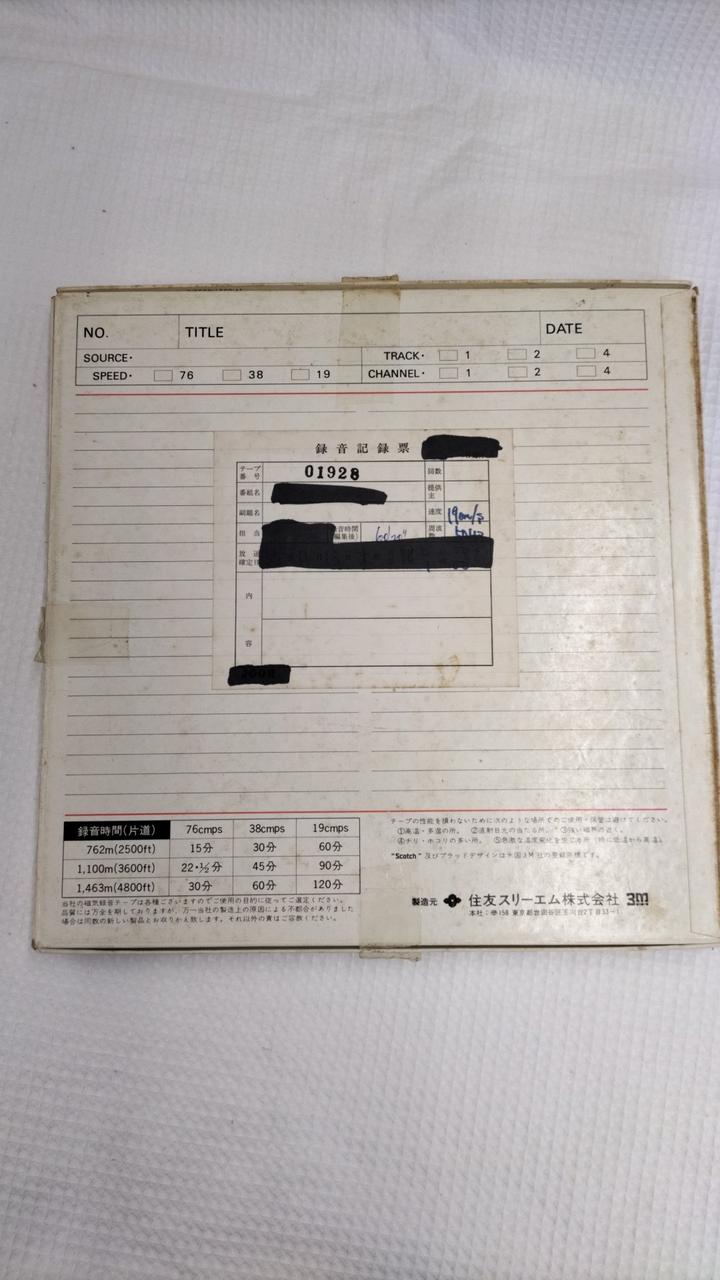 NO. TITLE DATE
SOURCE・ TRACK・ 1 2 4
SPEED・ 76 38 19 CHANNEL・ 1 2 4
録音記録票
テープ番号 01928 回数
番組名 提供主
副題名 速度 19cm/s
担当 録音時間(編集後) 周波数
放送確定日
内
容
録音時間(片道) 76cmps 38cmps 19cmps
762m(2500ft) 15分 30分 60分
1,100m(3600ft) 22・½分 45分 90分
1,463m(4800ft) 30分 60分 120分
当社の磁気録音テープは各種ございますのでご使用の目的に従ってご選定ください。
品質には万全を期しておりますが、万一当社の製造上の原因による不都合がありました
場合は同数の新しい製品とお取りかえ致します。それ以外の責はご容赦ください。
テープの性能を損わないために次のような場所でのご使用・保管は避けてください。
①高温・多湿の所。 ②直射日光の当たる所。 ③強い磁界の近く。
④チリ・ホコリの多い所。 ⑤急激な温度変化を生じる所(特に低温から高温)。
"Scotch"及びプラッドデザインは米国3M社の登録商標です。
製造元 住友スリーエム株式会社 3M
本社:〒158 東京都世田谷区玉川台2丁目33-1